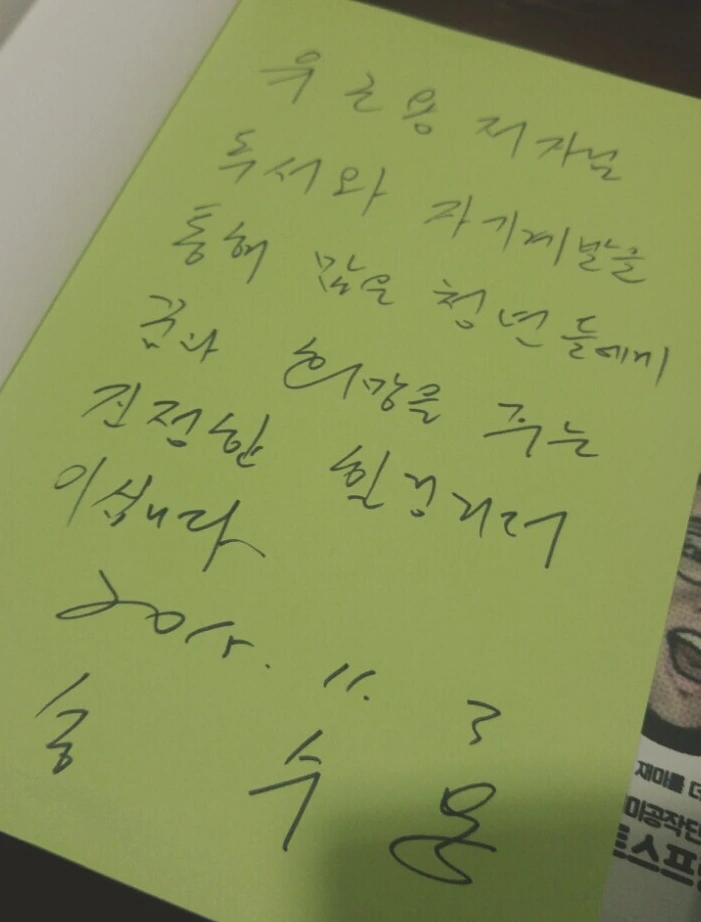 유근용 저자님
독서와 자기계발을
통해 많은 청년들에게
꿈과 희망을 주는
진정한 힐링리더
이십니다
2015. 11. 3
송수용
재미를 더
미공작단
트스프